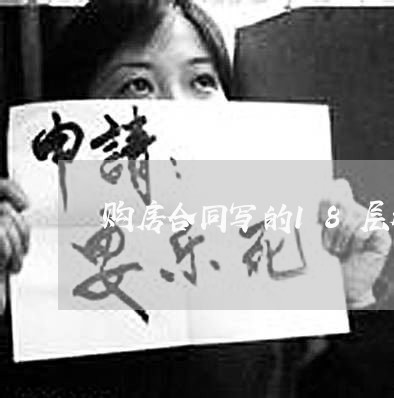 申請：
购房合同写的18层
安乐死